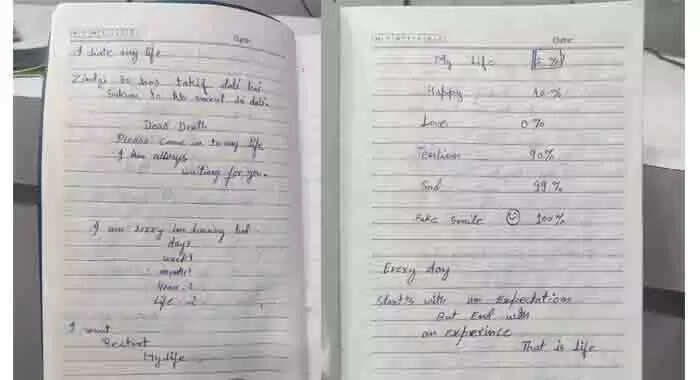 Date:
I hate my life
Zindgi to bas taklif deti hai.
Sukun to ab mout hi degi.
Dear Death
Please come in to my life
I am allways
waiting for you.
I am sorry im having bad
days
week!
month!
Year - ?
Life - ?
I want
Restart
My life
Date:
My life %
Happy 10 %
Love 0 %
Tention 90 %
Sad 99 %
Fake smile 100 %
Every day
starts with an Expectations
But End with
an experince
That is life